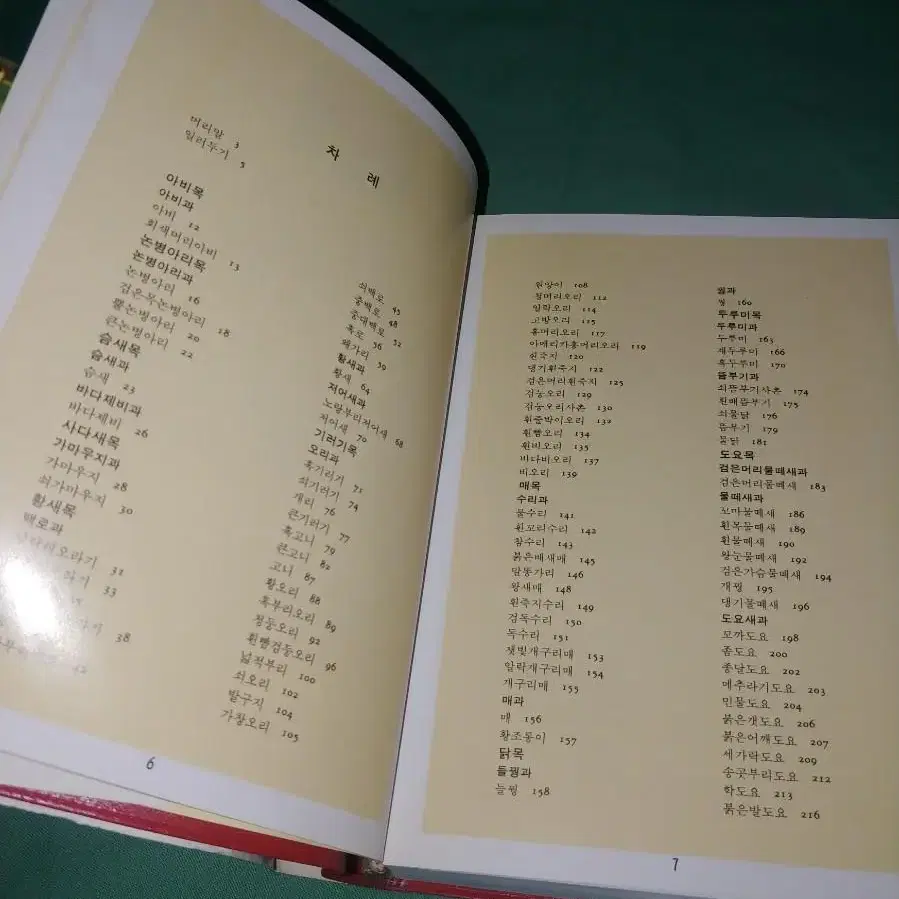 차 례
머리말 3
일러두기 5
아비목
아비과
아비 12
회색머리아비 13
논병아리목
논병아리과
논병아리 16
검은목논병아리 18
뿔논병아리 20
큰논병아리 22
슴새목
슴새과
슴새 23
바다제비과
바다제비 26
사다새목
가마우지과
가마우지 28
쇠가마우지 30
황새목
백로과
31
33
38
42
쇠백로 45
중백로 48
중대백로 52
흑로 56
왜가리 59
황새과
황새 64
저어새과
노랑부리저어새 68
저어새 70
기러기목
오리과
흑기러기 71
쇠기러기 74
개리 76
큰기러기 77
흑고니 79
큰고니 82
고니 87
황오리 88
혹부리오리 89
청둥오리 92
흰뺨검둥오리 96
넓적부리 100
쇠오리 102
발구지 104
가창오리 105
6
원앙이 108
청머리오리 112
알락오리 114
고방오리 115
홍머리오리 117
아메리가홍머리오리 119
흰죽지 120
댕기흰죽지 122
검은머리흰죽지 125
검둥오리 129
검둥오리사촌 130
흰줄박이오리 132
흰뺨오리 134
흰비오리 135
바다비오리 137
비오리 139
매목
수리과
물수리 141
흰꼬리수리 142
참수리 143
붉은배새매 145
말똥가리 146
왕새매 148
흰죽지수리 149
검독수리 150
독수리 151
잿빛개구리매 153
알락개구리매 154
개구리매 155
매과
매 156
황조롱이 157
닭목
들꿩과
들꿩 158
꿩과
꿩 160
두루미목
두루미과
두루미 163
재두루미 166
흑두루미 170
뜸부기과
쇠뜸부기사촌 174
흰배뜸부기 175
쇠물닭 176
뜸부기 179
물닭 181
도요목
검은머리물떼새과
검은머리물떼새 183
물떼새과
꼬마물떼새 186
흰목물떼새 189
흰물떼새 190
왕눈물떼새 192
검은가슴물떼새 194
개꿩 195
댕기물떼새 196
도요새과
꼬까도요 198
좀도요 200
종달도요 202
메추라기도요 203
민물도요 204
붉은갯도요 206
붉은어깨도요 207
세가락도요 209
송곳부리도요 212
학도요 213
붉은발도요 216
7